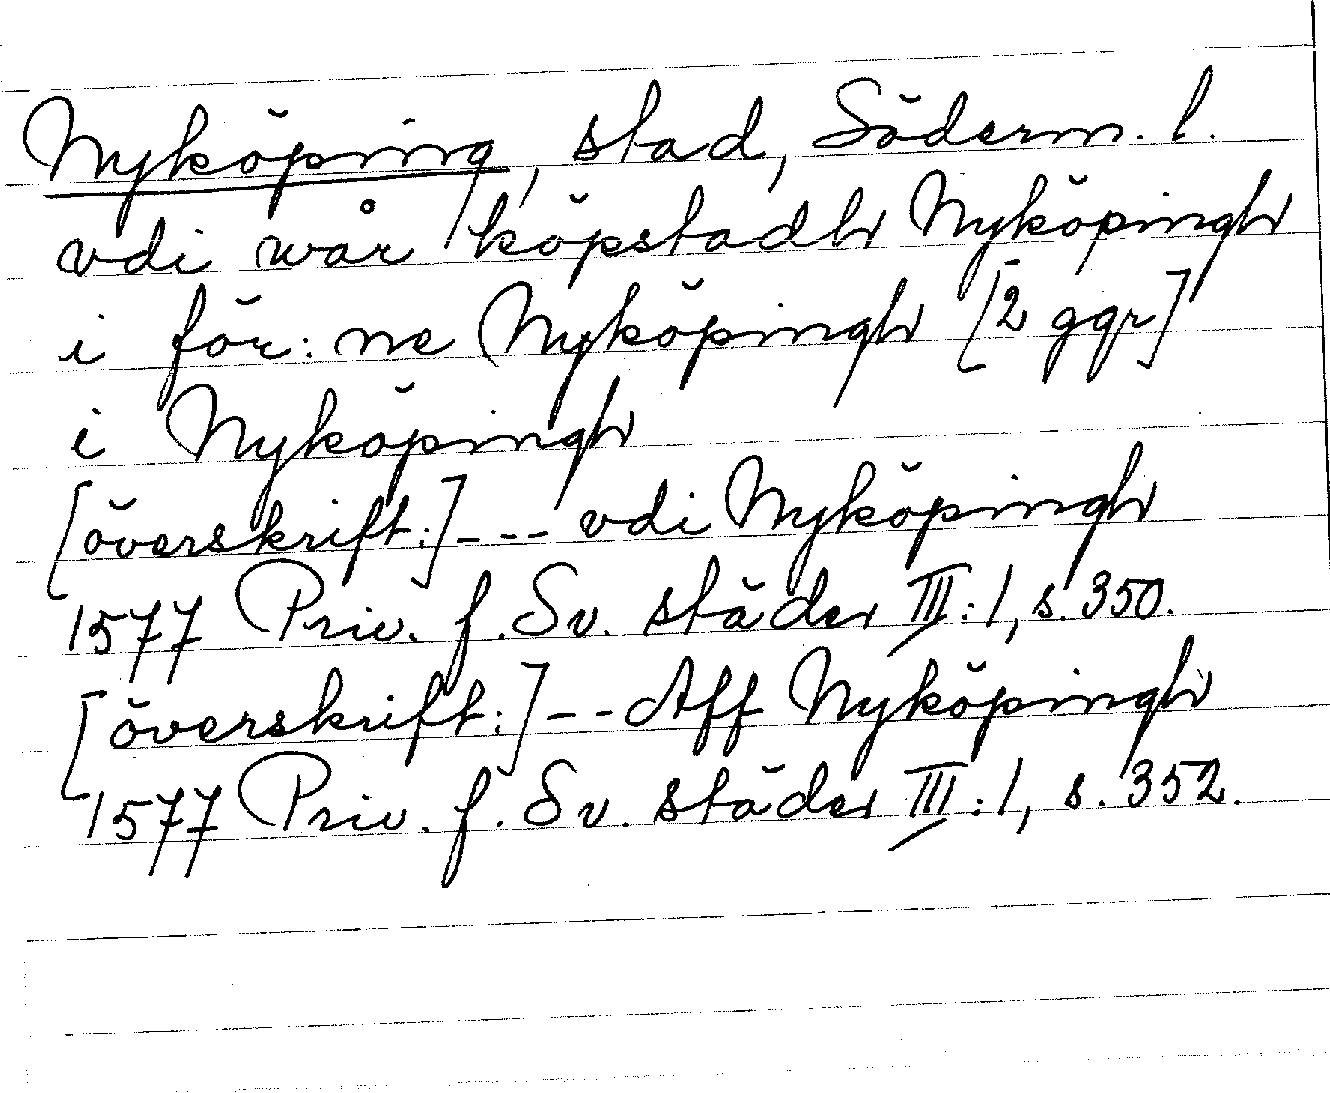 Nyköping, stad, Söderm. l.
vdi wår köpstadh Nyköpingh
i för:ne Nyköpingh [2 ggr]
i Nyköpingh
[överskrift:] --- vdi Nyköpingh
1577 Priv. f. Sv. städer III:1, s. 350.
[överskrift:] -- Aff Nyköpingh
1577 Priv. f. Sv. städer III:1, s. 352.